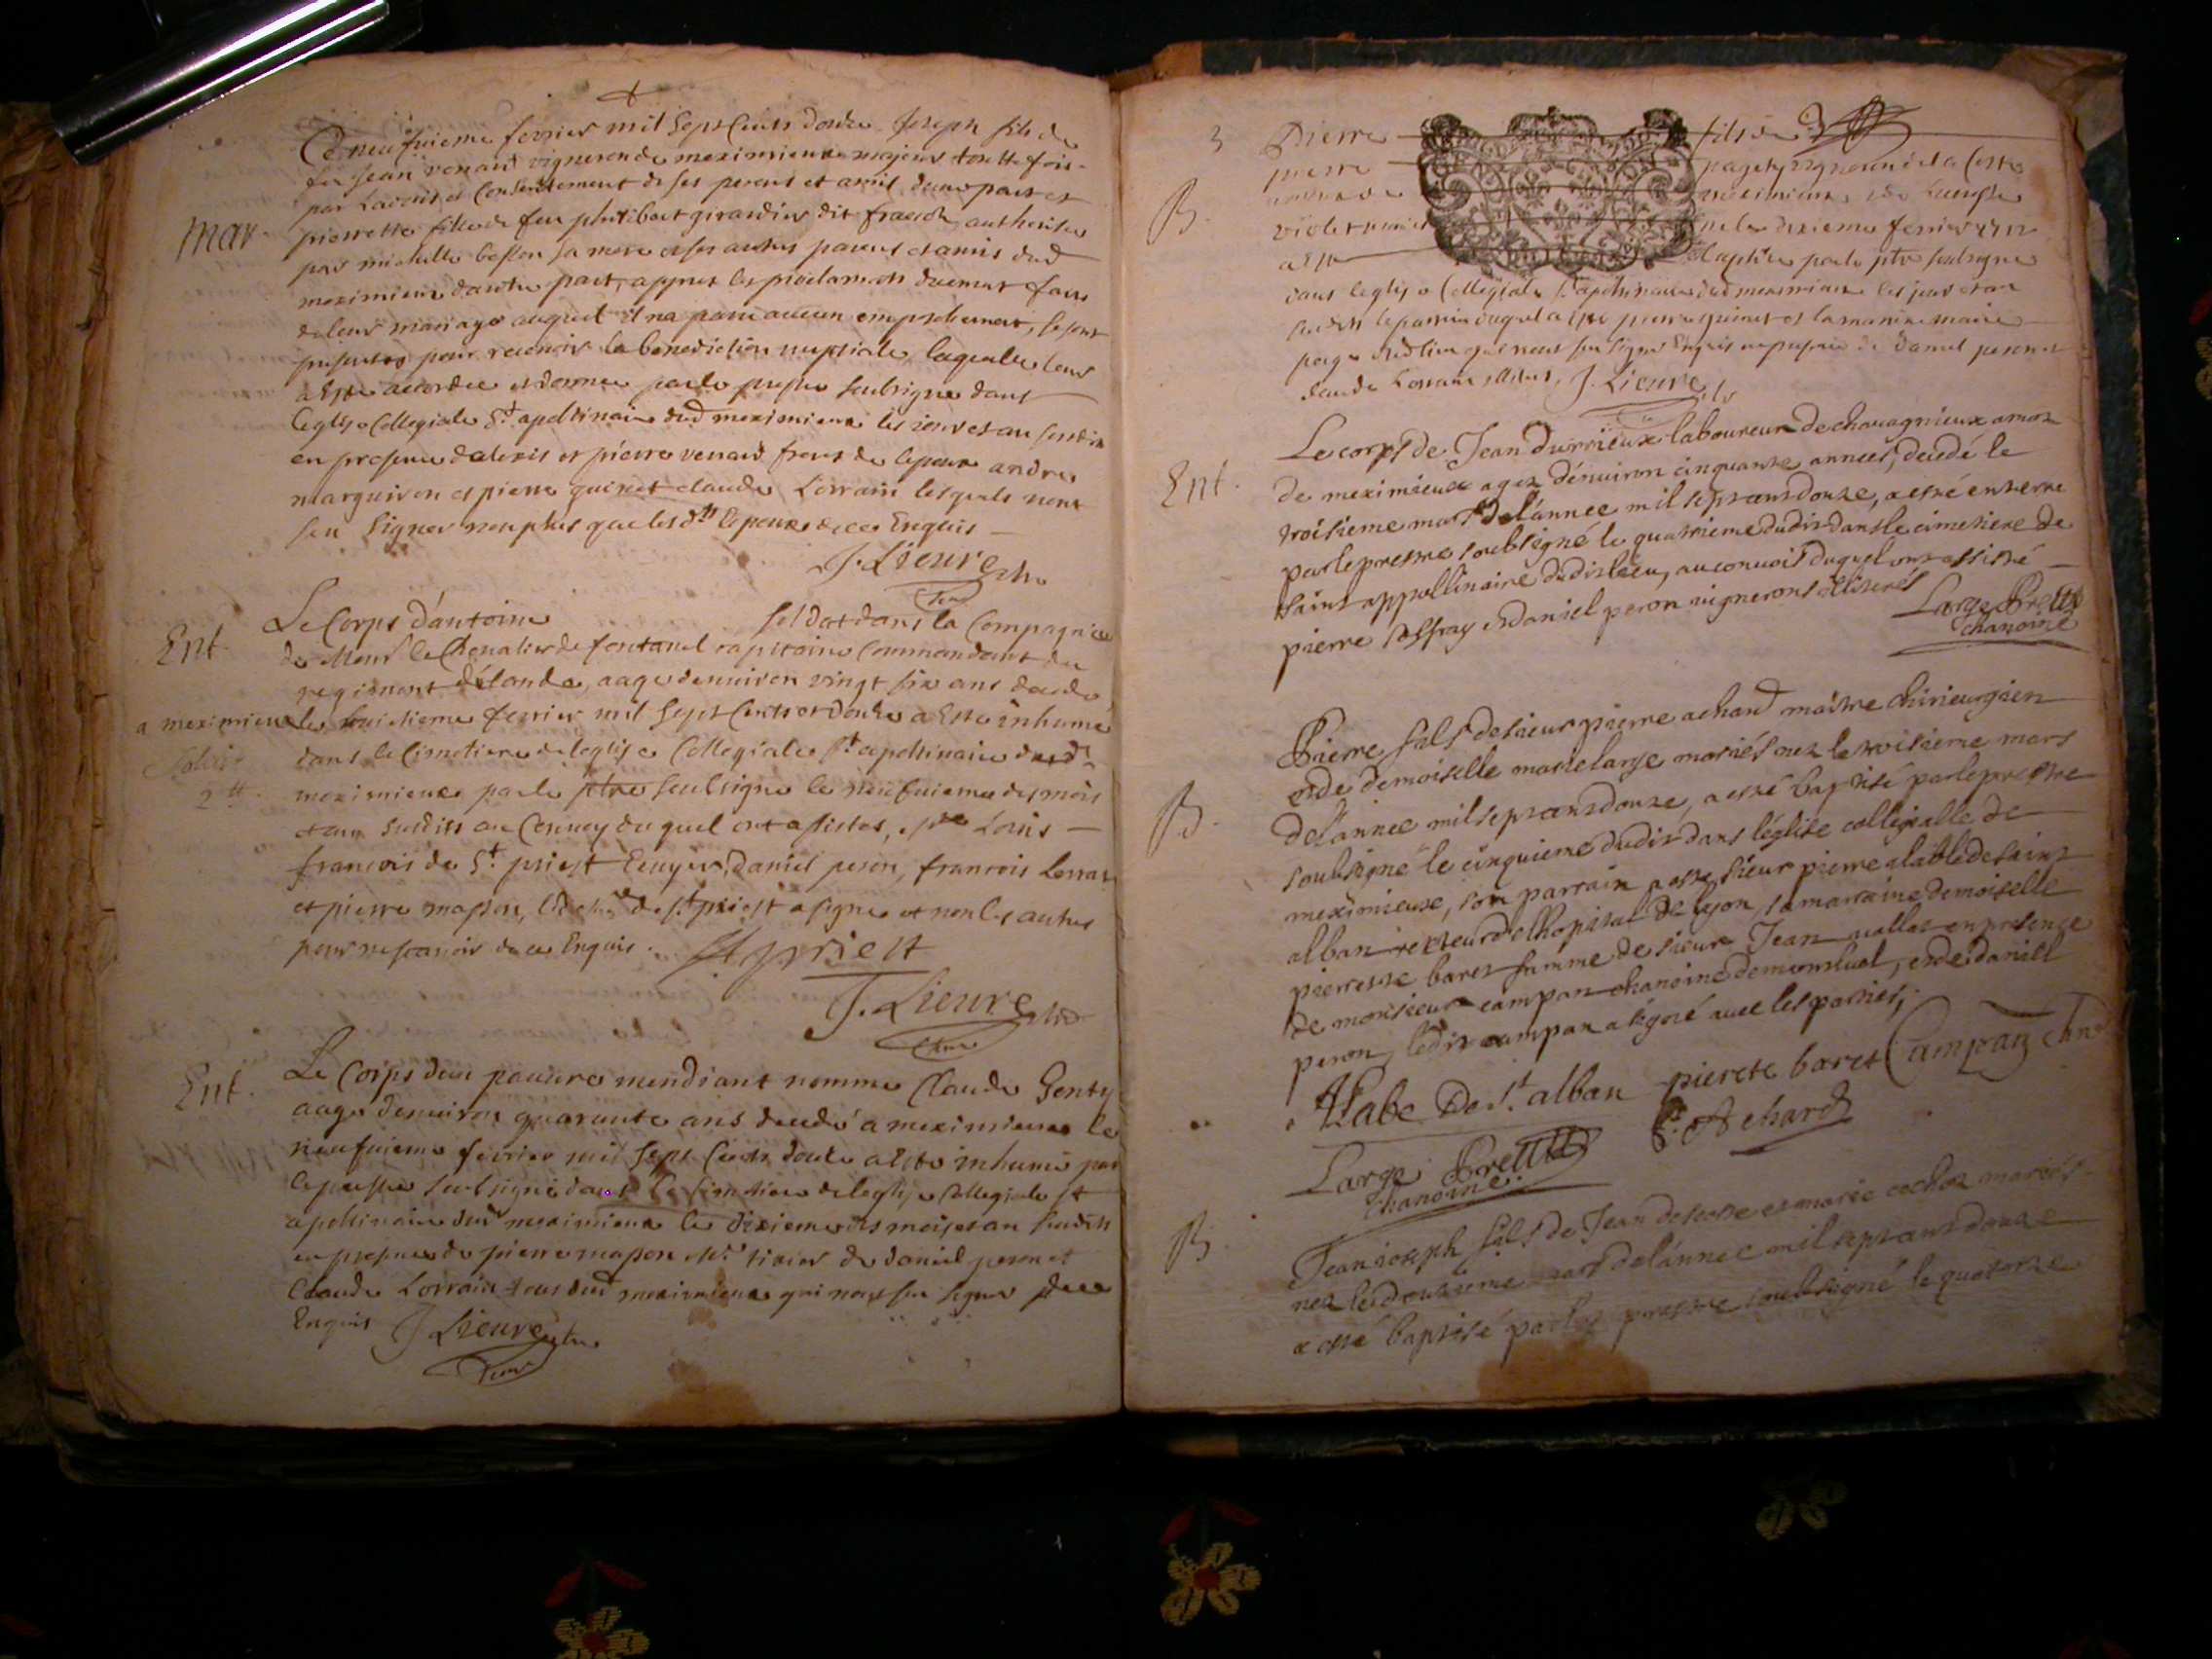 Ce neufuieme fevrier mil sept cents douze Joseph fils de
feu Jean venard vigneron de meximieux majeur touttefois
par Ladvis et Consentement de ses parens et amis dune part et
mar
pierrette fille de feu philibert girardier dit francois authorisée
par michelle besson sa mere et ses autres parens et amis dud
meximieux dautre part, appres les proclamaōns duement faites
de leur mariage auquel il na paru aucun empeschement, se sont
presentes pour recevoir la benediction nuptiale, laquelle leur
a este accordee et donnee par le prestre soubsigne dans
Leglise Collegiale St apollinaire dud meximieux les jour et an susdits
en presence dalexis et pierre venard freres de lepoux andre
marguiron et pierre guinet claude Lorrain lesquels nont
sceu signer non plus que les dts lepoux de ce Enquis
J. Lieure
Ent.
Le Corps dantoine soldat dans la Compagnie
de Monsr le Chevalier de fontanel capitaine Commandant du
regiment aagé denuiron vingt six ans decedé
a meximieux le huictieme fevrier mil sept Cents et douze a Esté inhumé
dans le Cimetiere de leglise Collegiale St apollinaire dudt
2 tt
meximieux par le ptre soubsigné le neufuieme des mois
et an susdits au Convoy duquel ont assistes, Louis
francois de St. priest Ecuyer, daniel peron, francois Lorrain
et pierre masson, de St priest a signé et non les autres
pour ne scavoir de ce Enquis. St priest
J. Lieure
Ent.
Le Corps dun pauure mendiant nomme Claude Genty
aagé denuiron quarante ans decedé a meximieux le
neufuieme fevrier mil sept Cents douze a esté inhumé par
le prestre soubsigné dans le Cimetiere de leglise Collegiale St
apollinaire dud meximieux le dixieme des mois et an susdits
en presence de pierre masson Mr. de daniel peron et
Claude Lorrain tous dud meximieux qui nont sceu signer de ce
Enquis J. Lieure
3 Pierre fils de
pierre vigneron
B. meximieux
dixieme fevrier 1712
a esté baptisé par le ptre soubsigné
dans leglise Collegiale St apollinaire dud meximieux les jour et an
susdits le parrain duquel a esté pierre guinet et la marraine marie
dud lieu qui nont sceu signer Enquis en presence de daniel peron et
claude Lorrain J. Lieure
Ent.
Le corps de Jean durrieux laboureur de chavagnieux a mort
de meximieux agez d'enuiron cinquante annees, decedé le
troisieme mars de l'annee mil sept cens douze, a esté enterre
par le prestre soubsigné le quatrieme dudit dans le cimetiere de
saint appollinaire dudit lieu, au conuois duquel ont assisté
pierre et daniel peron vignerons illiterés
Large Prettre
chanoine
B.
Pierre fils de sieur pierre achard maitre chirieurgien
et de demoiselle marie large mariés nez le troisieme mars
de l'annee mil sept cens douze, a esté baptisé par le prestre
soubsigné le cinquieme dudit dans l'eglise collegialle de
meximieux, son parrain a esté sieur pierre alabe de saint
alban recteur de l'hopital de lyon, sa marraine demoiselle
pierrette baret femme de sieur Jean vallet en presence
de monsieur campan chanoine de monluel, et de daniel
peron, ledit campan a signé auec les parties,
Alabe De St. alban pierete baret Campan
Large Prettre P. Achard
Chanoine.
B.
Jean ioseph fils de Jean et marie cochoz mariés
nez le douzieme mars de l'annee mil sept cens douze
a esté baptisé par le prestre soubsigné le quatorze